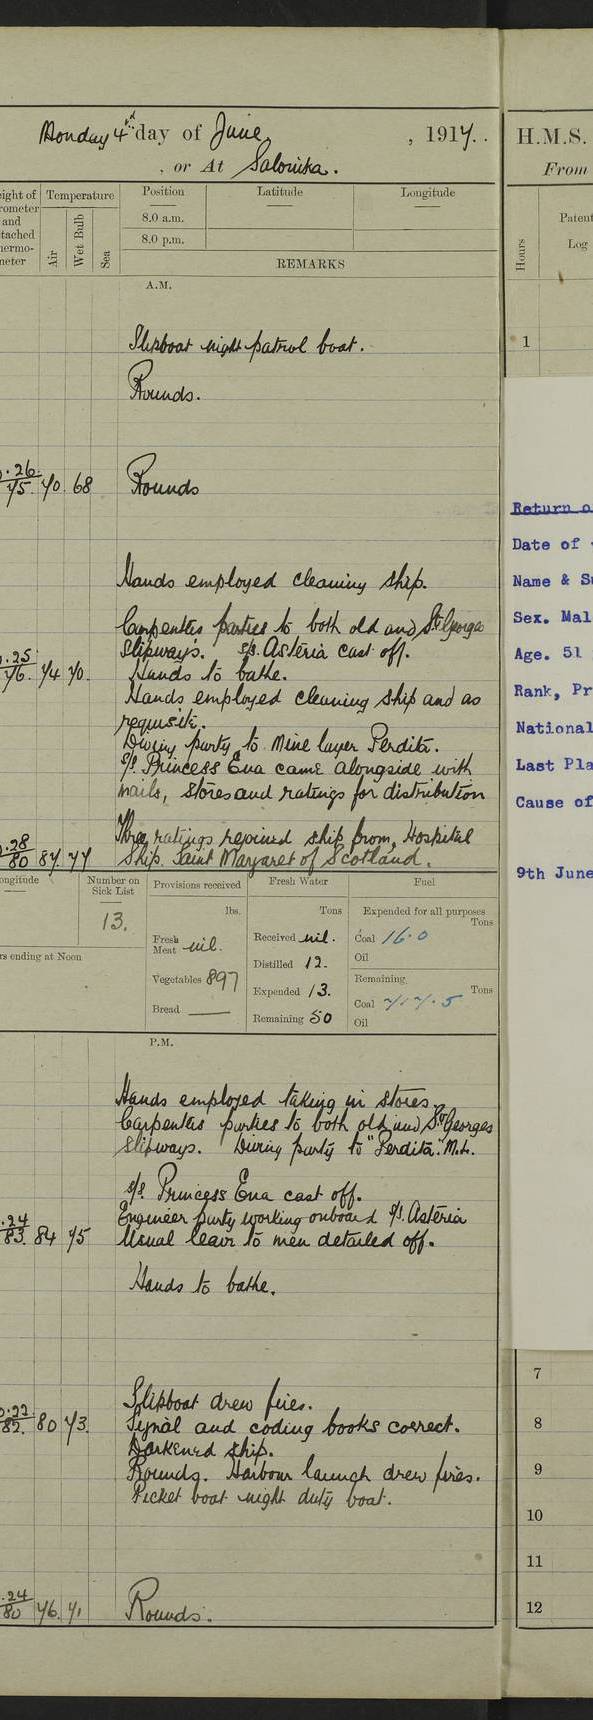 Monday 4 day of June, , 1917.
, or At Salonika.
eight of
rometer
and
tached
hermo-
meter
Temperature
Air
Wet Bulb
Sea
Position
Latitude
Longitude
8.0 a.m.
8.0 p.m.
REMARKS
A.M.
Slipboat night patrol boat.
Rounds.
.26
75. 70. 68 Rounds
Hands employed cleaning ship.
Carpenters parties to both old and St George
Slipways. s/s. Asteria cast off.
.25
76. 74 70. Hands to bathe.
Hands employed cleaning ship and as
requisite.
Diving party to Mine layer Perdita.
s/s. Princess Ena came alongside with
mails, stores and ratings for distribution
Three ratings rejoined ship from Hospital
.28
80 87. 77 Ship. Saint Margaret of Scotland.
ongitude
Number on
Sick List
13.
rs ending at Noon
Provisions received
lbs.
Fresh
Meat nil.
Vegetables 897
Bread
Fresh Water
Tons
Received nil.
Distilled 12.
Expended 13.
Remaining 50
Fuel
Expended for all purposes
Tons
Coal 16.0
Oil
Remaining.
Tons
Coal 717.5
Oil
P.M.
Hands employed taking in stores.
Carpenters parties to both old and St Georges
Slipways. Diving party to "Perdita". M.L.
s/s. Princess Ena cast off.
Engineer party working onboard s/s. Asteria
.24
83. 84 75 Usual leave to men detailed off.
Hands to bathe.
Slipboat drew fires.
.22
82. 80 73. Signal and coding books correct.
Darkened ship.
Rounds. Harbour launch drew fires.
Picket boat night duty boat.
.24
80 76. 71 Rounds.
H.M.S.
From
Hours
Patent
Log
1
Return o
Date of
Name & Su
Sex. Mal
Age. 51
Rank, Pr
National
Last Pla
Cause of
9th June
7
8
9
10
11
12